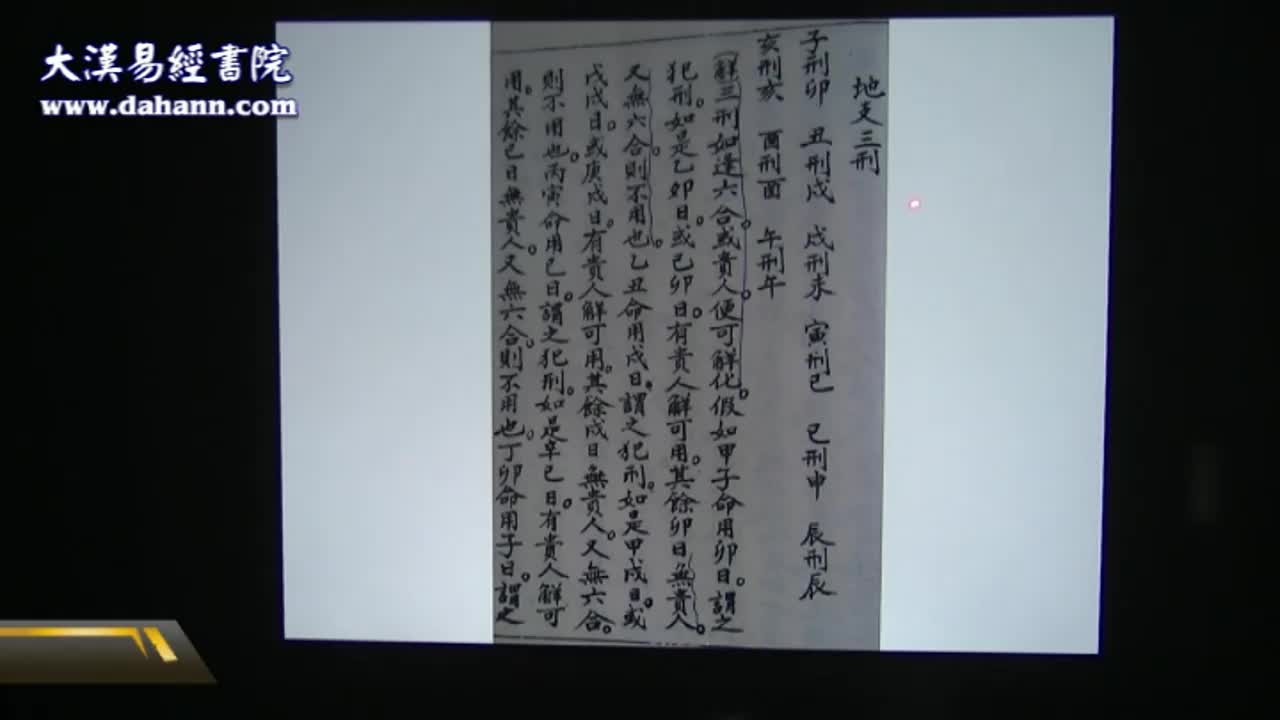 大漢易經書院
www.dahann.com
地支三刑
子刑卯 丑刑戌 戌刑未 寅刑巳 巳刑申 辰刑辰
亥刑亥 酉刑酉 午刑午
(解三刑如逢六合。或貴人。便可解化。假如甲子命用卯日。謂之
犯刑。如是乙卯日。或己卯日。有貴人解可用。其餘卯日無貴人。
又無六合。則不用也。乙丑命用戌日。謂之犯刑。如是甲戌日。或
戊戌日。或庚戌日。有貴人解可用。其餘戌日無貴人。又無六合。
則不用也。丙寅命用巳日。謂之犯刑。如是辛巳日。有貴人解可
用。其餘巳日無貴人。又無六合。則不用也。丁卯命用子日。謂之